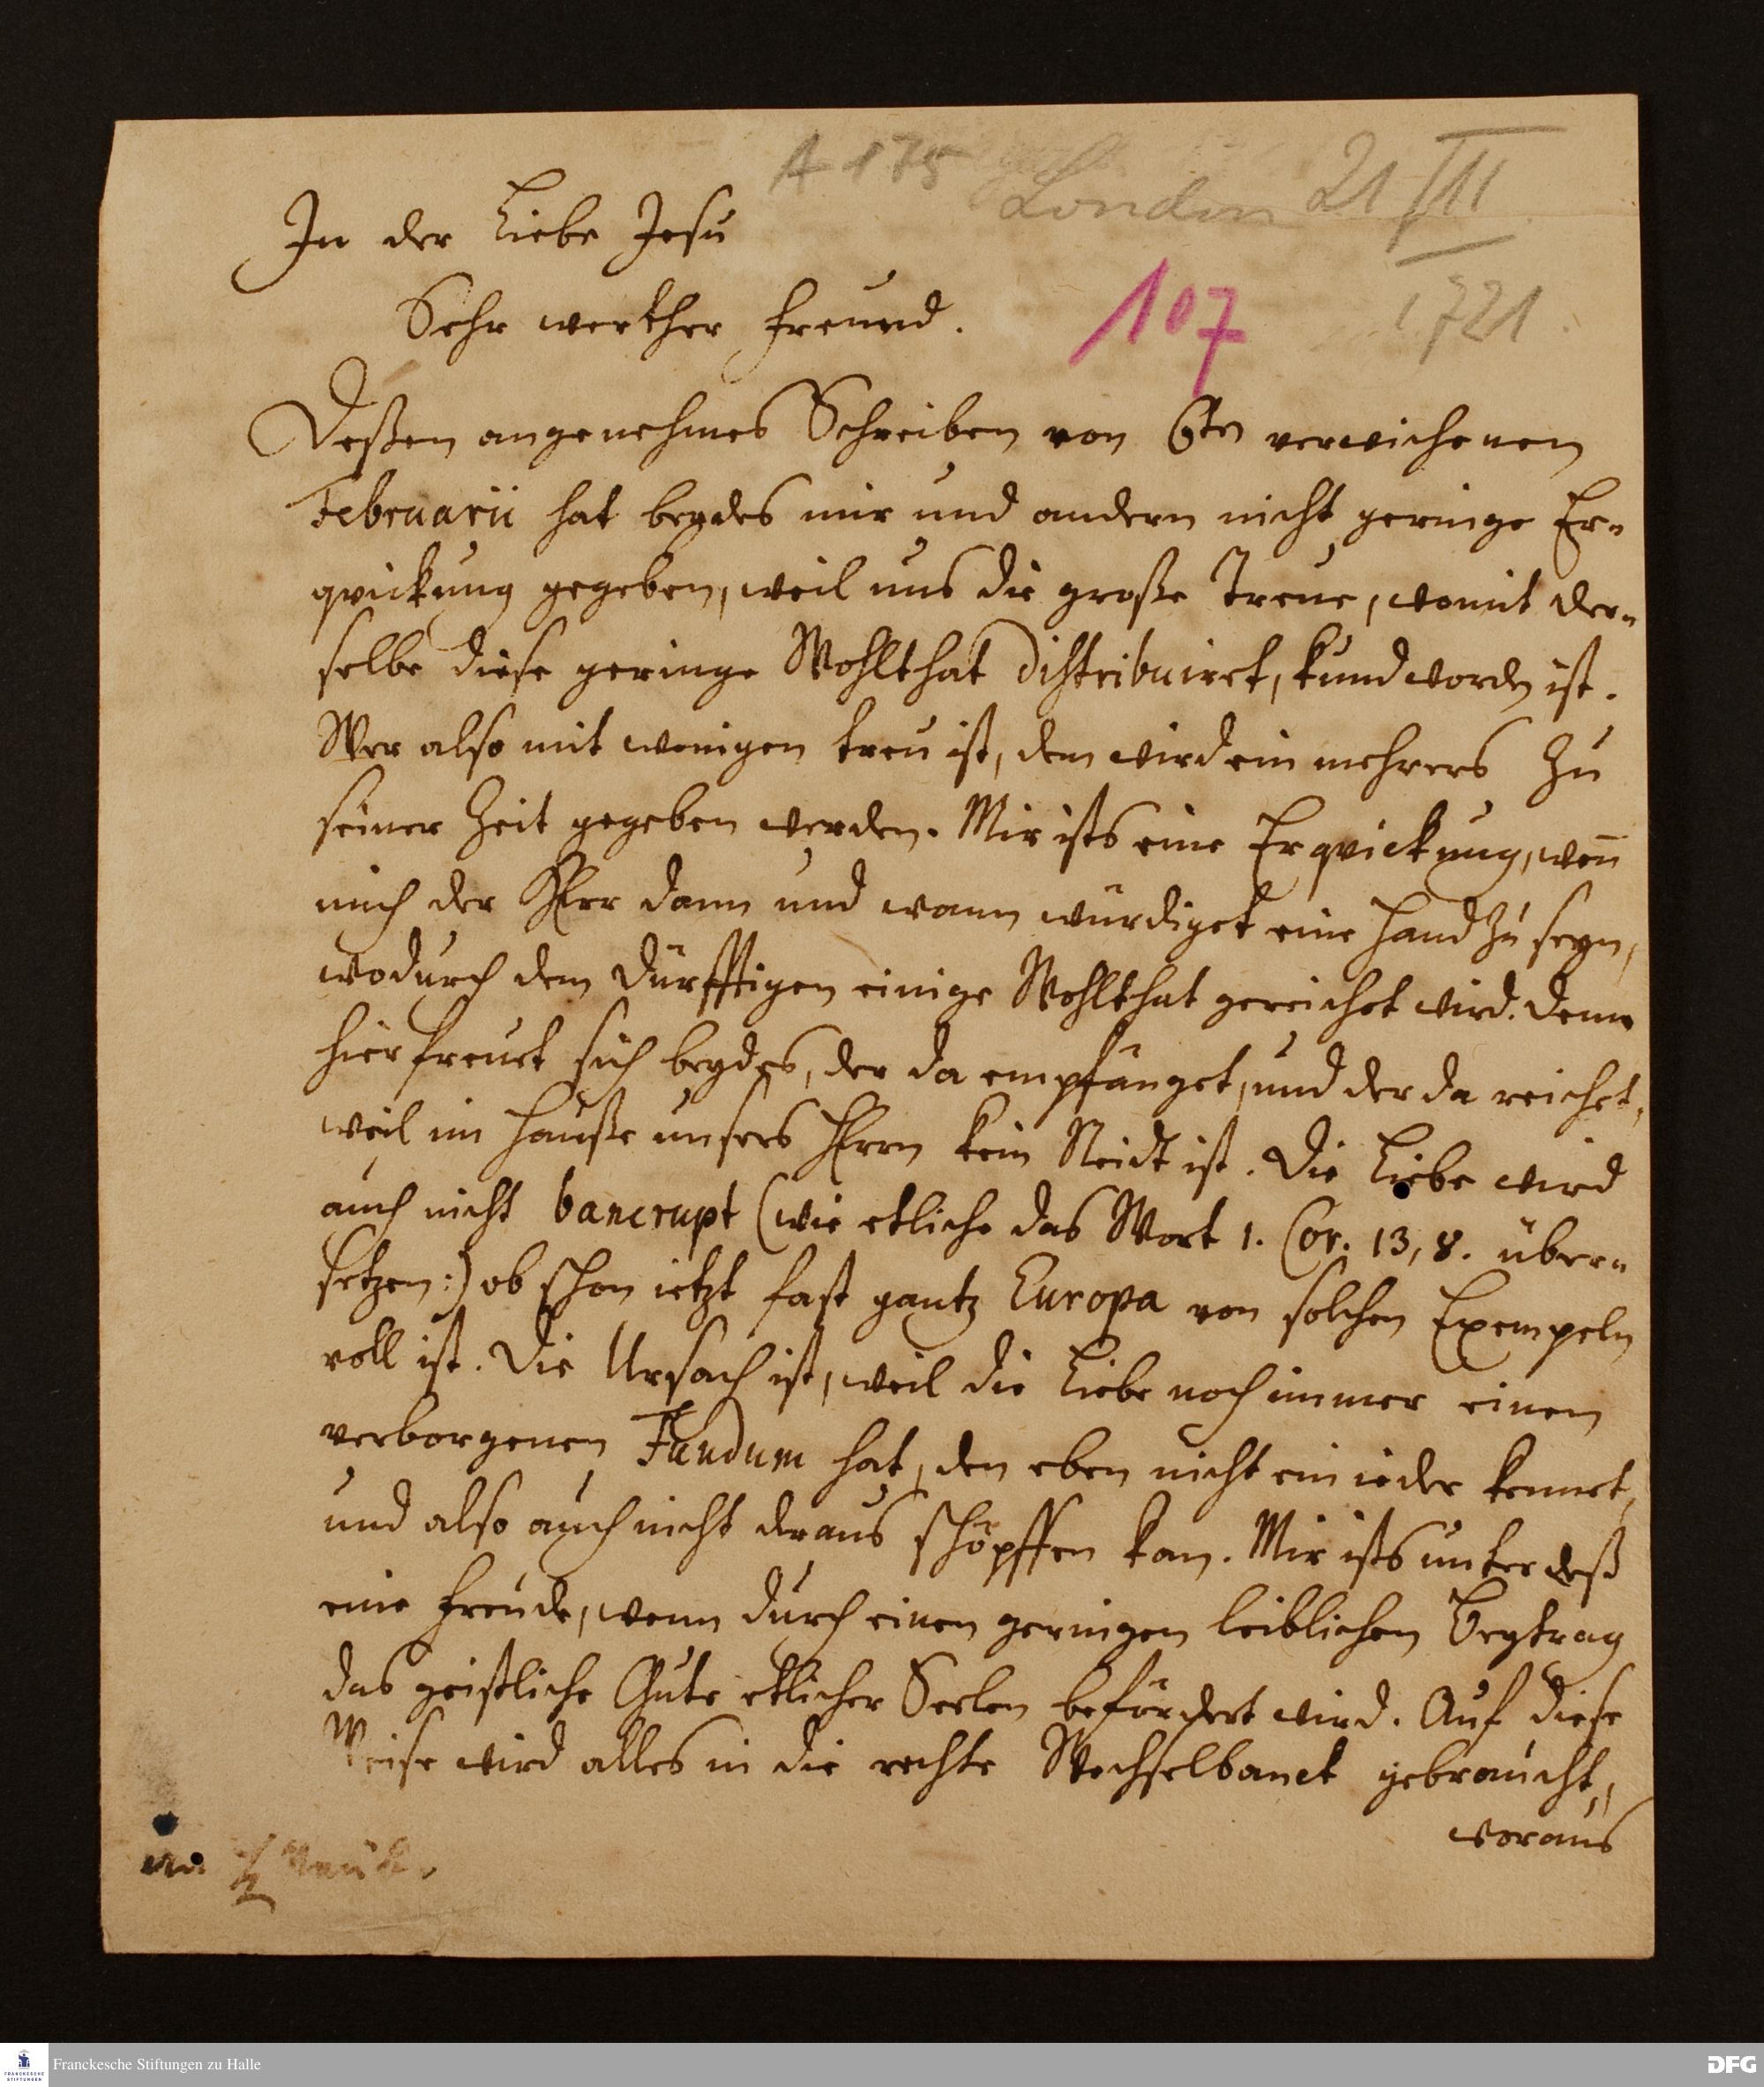 A 175
London 21/III
1721.
107
In der Liebe Jesu
Sehr werther Freund.
Deßen angenehmes Schreiben von 6ten verwichenen
Februarii hat beydes mir und andern nicht geringe Er-
qvickung gegeben, weil uns die große Treue, womit der-
selbe diese geringe Wohlthat distribuiret, kund worden ist.
Wer also mit wenigen treu ist, dem wird ein mehrers zu
seiner Zeit gegeben werden. Mir ists eine Erqvickung, weñ
mich der HErr dann und wann würdiget eine Hand zu seyn,
wodurch dem Dürfftigen einige Wohlthat gereichet wird. Denn
hier freuet sich beydes, der da empfänget, und der da reichet,
weil im Hauße unsers HErrn kein Neidt ist. Die Liebe wird
auch nicht bancrupt (wie etliche das Wort 1. Cor. 13, 8. über-
setzen:) ob schon ietzt fast gantz Europa von solchen Exempeln
voll ist. Die Ursach ist, weil die Liebe noch immer einen
verborgenen Fundum hat, den eben nicht ein ieder kennet,
und also auch nicht draus schöpffen kan. Mir ists unterdeß
eine Freude, wenn durch einen geringen leiblichen Beytrag
das geistliche Gute etlicher Seelen befördert wird. Auf diese
Weise wird alles in die rechte Wechselbanck gebraucht,
woraus
Franckesche Stiftungen zu Halle
FRANCKESCHE
STIFTUNGEN
DFG